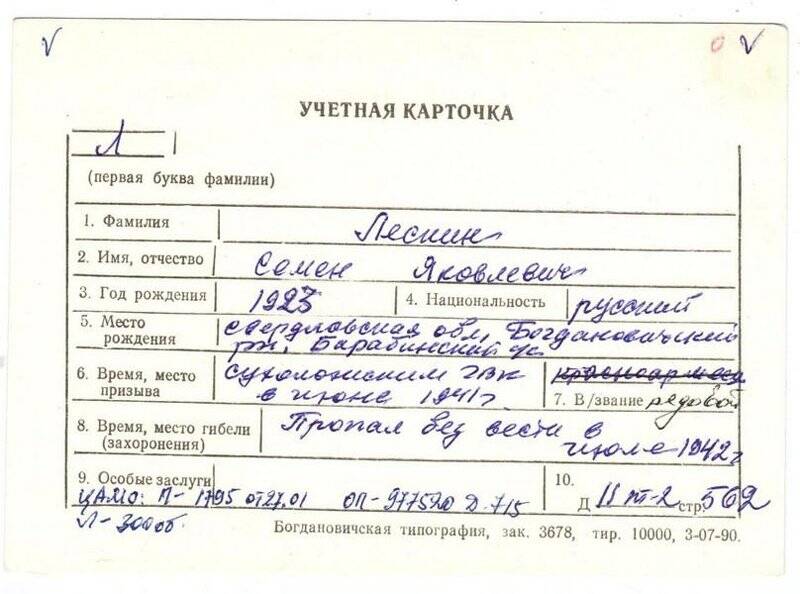 V
0 V
УЧЕТНАЯ КАРТОЧКА
Л
(первая буква фамилии)
1. Фамилия Лескин
2. Имя, отчество Семен Яковлевич
3. Год рождения 1923 4. Национальность русский
5. Место рождения Свердловская обл, Богдановичский
рн, Барабинский
6. Время, место призыва Сухоложским ГВК
в июне 1941г красноармеец
7. В/звание рядовой
8. Время, место гибели (захоронения) Пропал без вести в
июле 1942г
9. Особые заслуги
ЦАМО: П- 1795 от 27.01 ОП-977520 Д.715
Л-300об.
10.
Д II т-2 стр. 562
Богдановичская типография, зак. 3678, тир. 10000, 3-07-90.